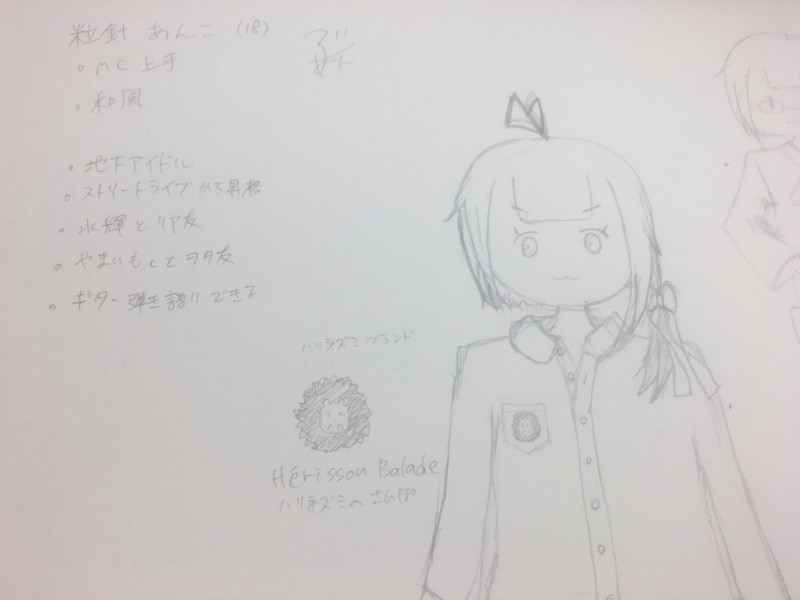 粒針 あんこ (18)
つぶ
。MC 上手
。和風
。地下アイドル
。ストリートライブから昇格
。氷輝とリア友
。やまいもcとヲタ友
。ギター弾き語りできる
ハリネズミブランド
Hérisson Balade
ハリネズミのさんぽ